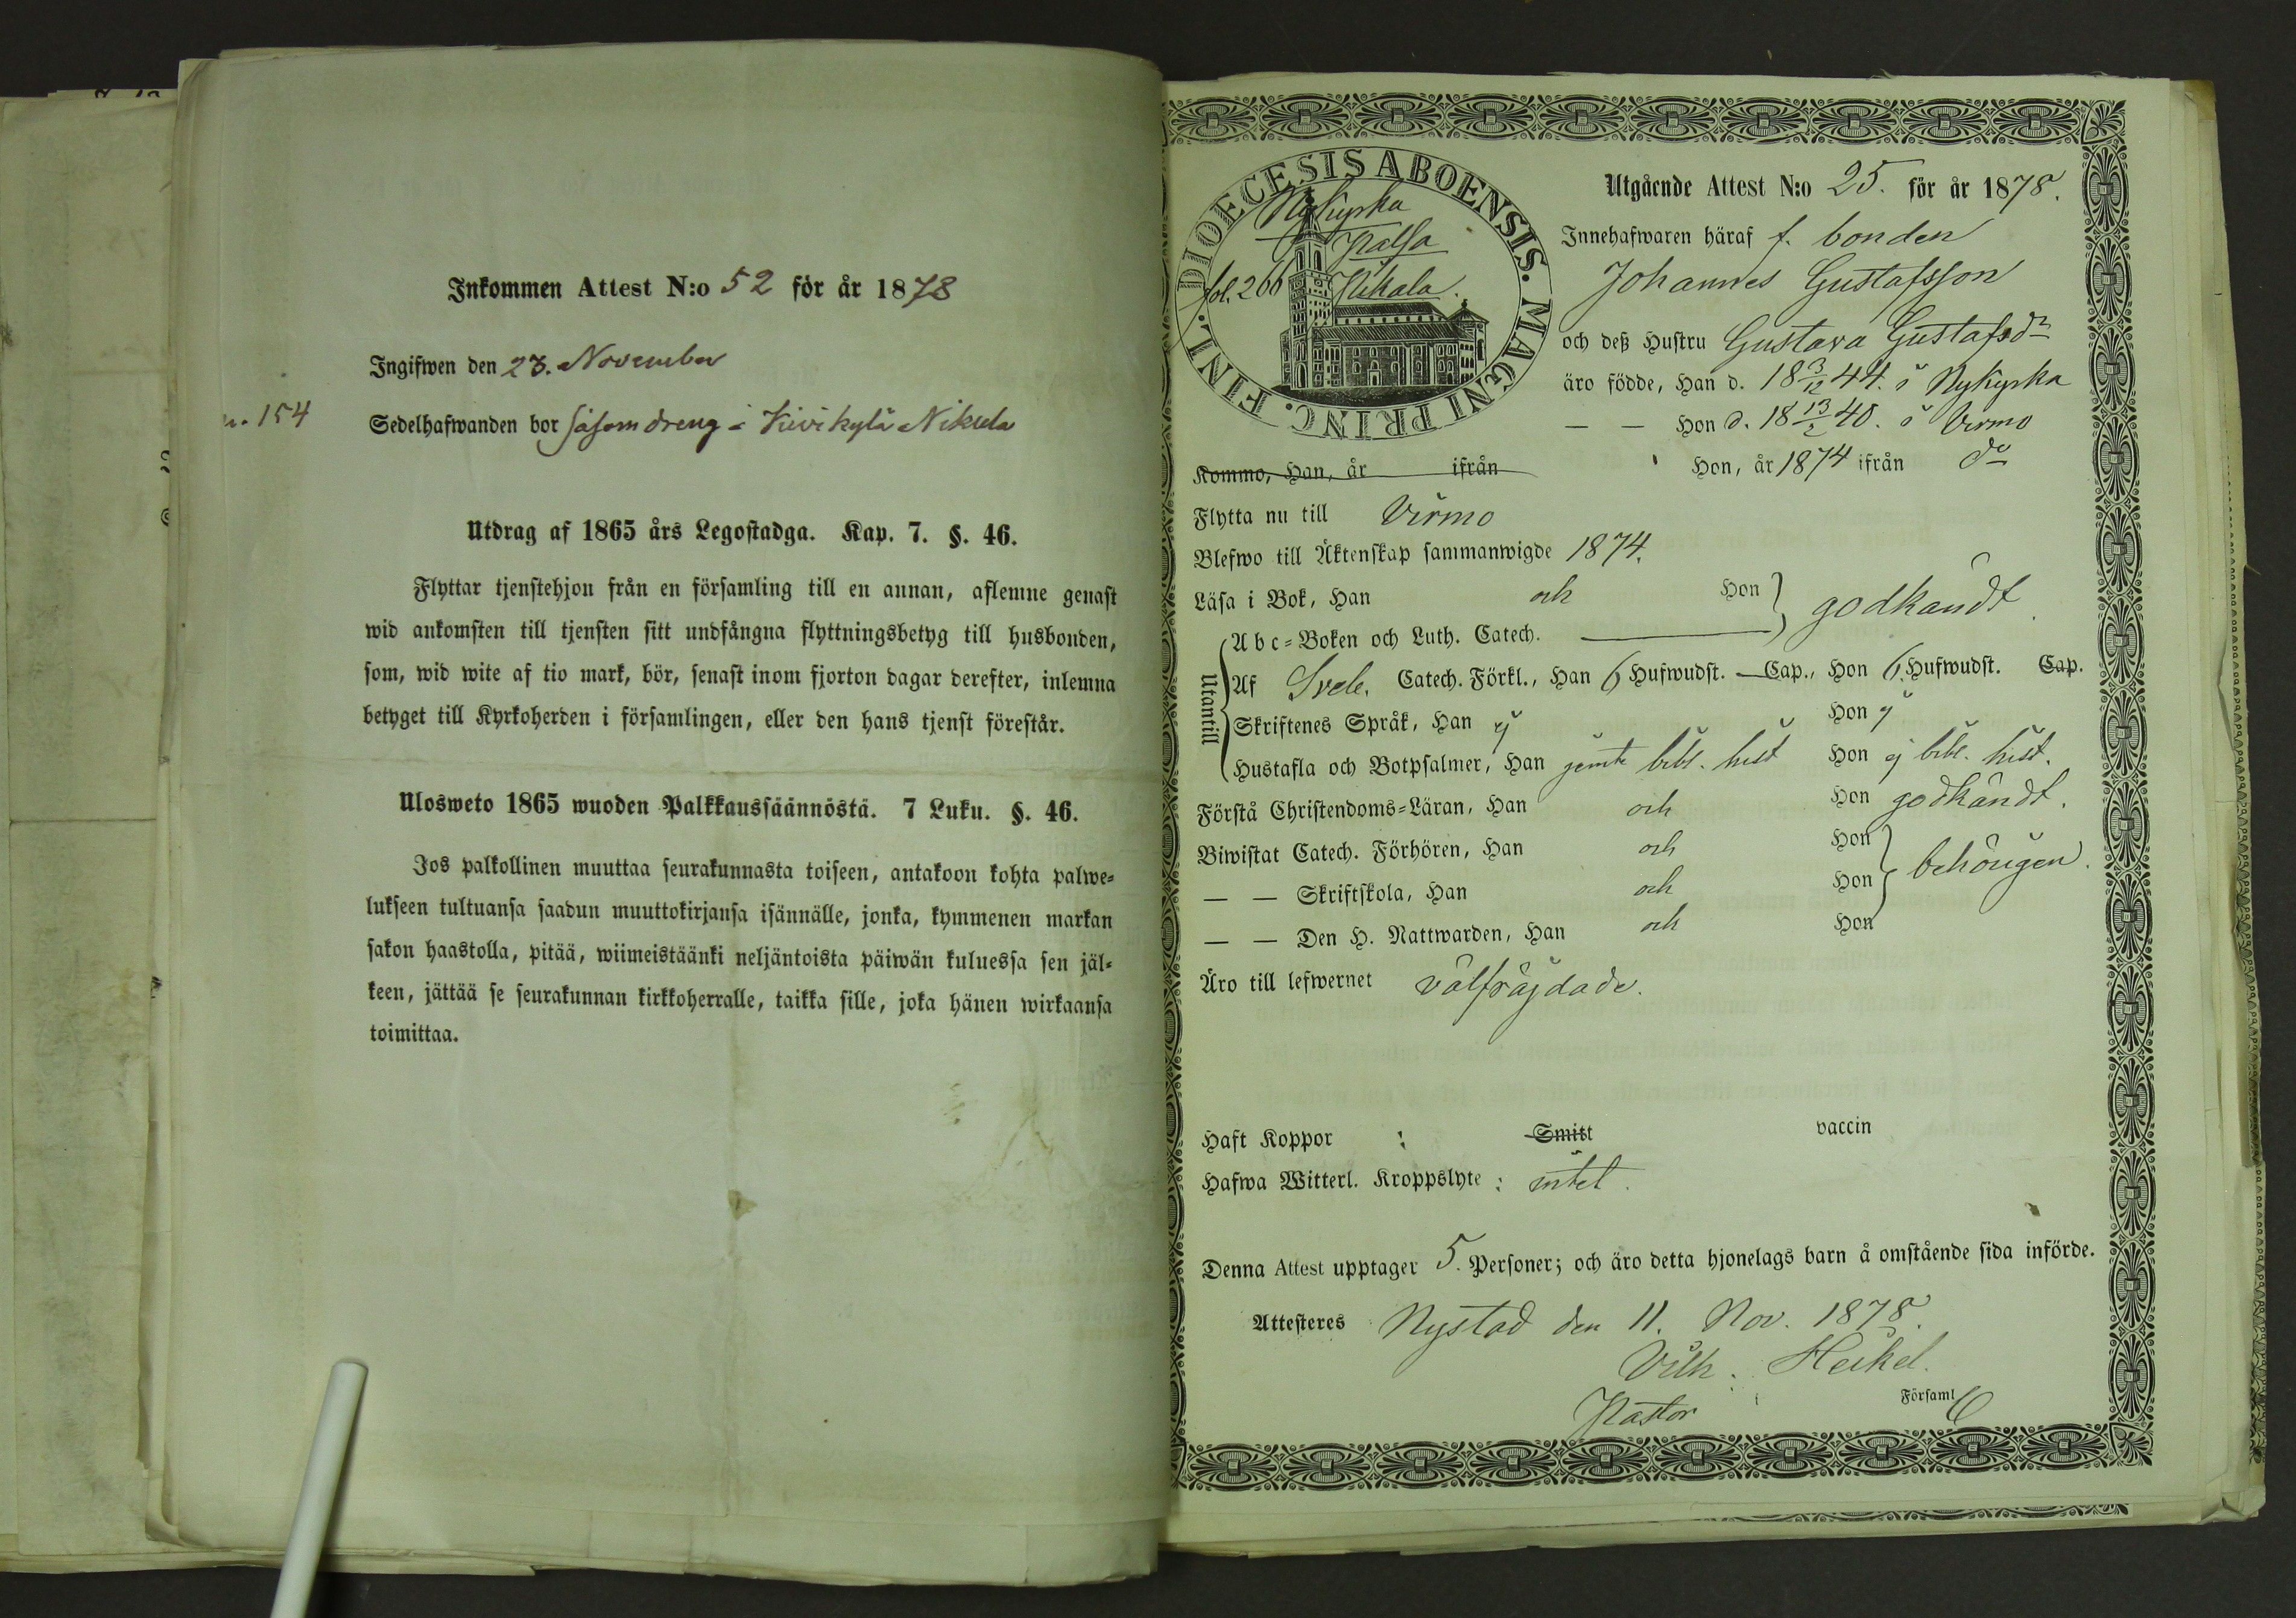 Inkommen Attest N:o 52 för år 1878
Ingifwen den 23. November
n. 154
Sedelhafwanden bor såsom dreng i Kivikylä Nikula
Utdrag af 1865 års Legostadga. Kap. 7. §. 46.
Flyttar tjenstehjon från en församling till en annan, aflemne genast
wid ankomsten till tjensten sitt undfångna flyttningsbetyg till husbonden,
som, wid wite af tio mark, bör, senast inom fjorton dagar derefter, inlemna
betyget till Kyrkoherden i församlingen, eller den hans tjenst förestår.
Ulosweto 1865 wuoden Palkkaussäännöstä. 7 Luku. §. 46.
Jos palkollinen muuttaa seurakunnasta toiseen, antakoon kohta palwe-
lukseen tultuansa saadun muuttokirjansa isännälle, jonka, kymmenen markan
sakon haastolla, pitää, wiimeistäänki neljäntoista päiwän kuluessa sen jäl-
keen, jättää se seurakunnan kirkkoherralle, taikka sille, joka hänen wirkaansa
toimittaa.
DIOECESIS ABOENSIS. MAGNI PRINC. FINL.
Nykyrka
Palsa
fol. 266
Utgående Attest N:o 25. för år 1878.
Innehafwaren häraf f. bonden
Johannes Gustafsson
och deß Hustru Gustava Gustafsdr
äro födde, Han d. 18 3/12 44. i Nykyrka
— — Hon d. 18 13/2 40. i Virmo
Kommo, Han, år ifrån Hon, år 1874 ifrån do
Flytta nu till Virmo
Blefwo till Äktenskap sammanwigde 1874.
Läsa i Bok, Han och Hon godkändt.
Utantill
Abc-Boken och Luth. Catech. —
Af Sveb. Catech. Förkl., Han 6 Hufwudst. — Cap., Hon 6. Hufwudst. Cap.
Skriftenes Språk, Han ej Hon ej
Hustafla och Botpsalmer, Han jemte bibl. hist Hon ej bibl. hist.
Förstå Christendoms-Läran, Han och Hon godkändt.
Biwistat Catech. Förhören, Han och Hon
— — Skriftskola, Han och Hon behörigen.
— — Den H. Nattwarden, Han och Hon
Äro till lefwernet välfräjdade.
Haft Koppor : Smitt vaccin
Hafwa Witterl. Kroppslyte : intet.
Denna Attest upptager 5. Personer; och äro detta hjonelags barn å omstående sida införde.
Attesteres Nystad den 11. Nov. 1878.
Vilh. Heikel.
Pastor Församl